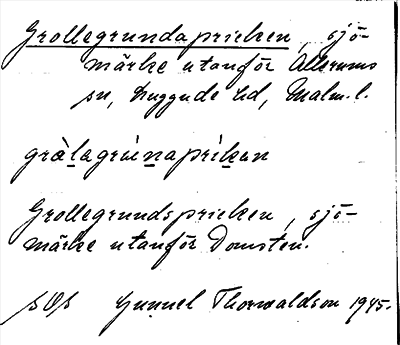 Grollegrundapricken, sjö-
märke utanför Allerums
sn, Luggude hd, Malm. l.
gràlagrúnapríken
Grollegrundspricken, sjö-
märke utanför Domsten.
Gunnel Thorwaldson 1945.